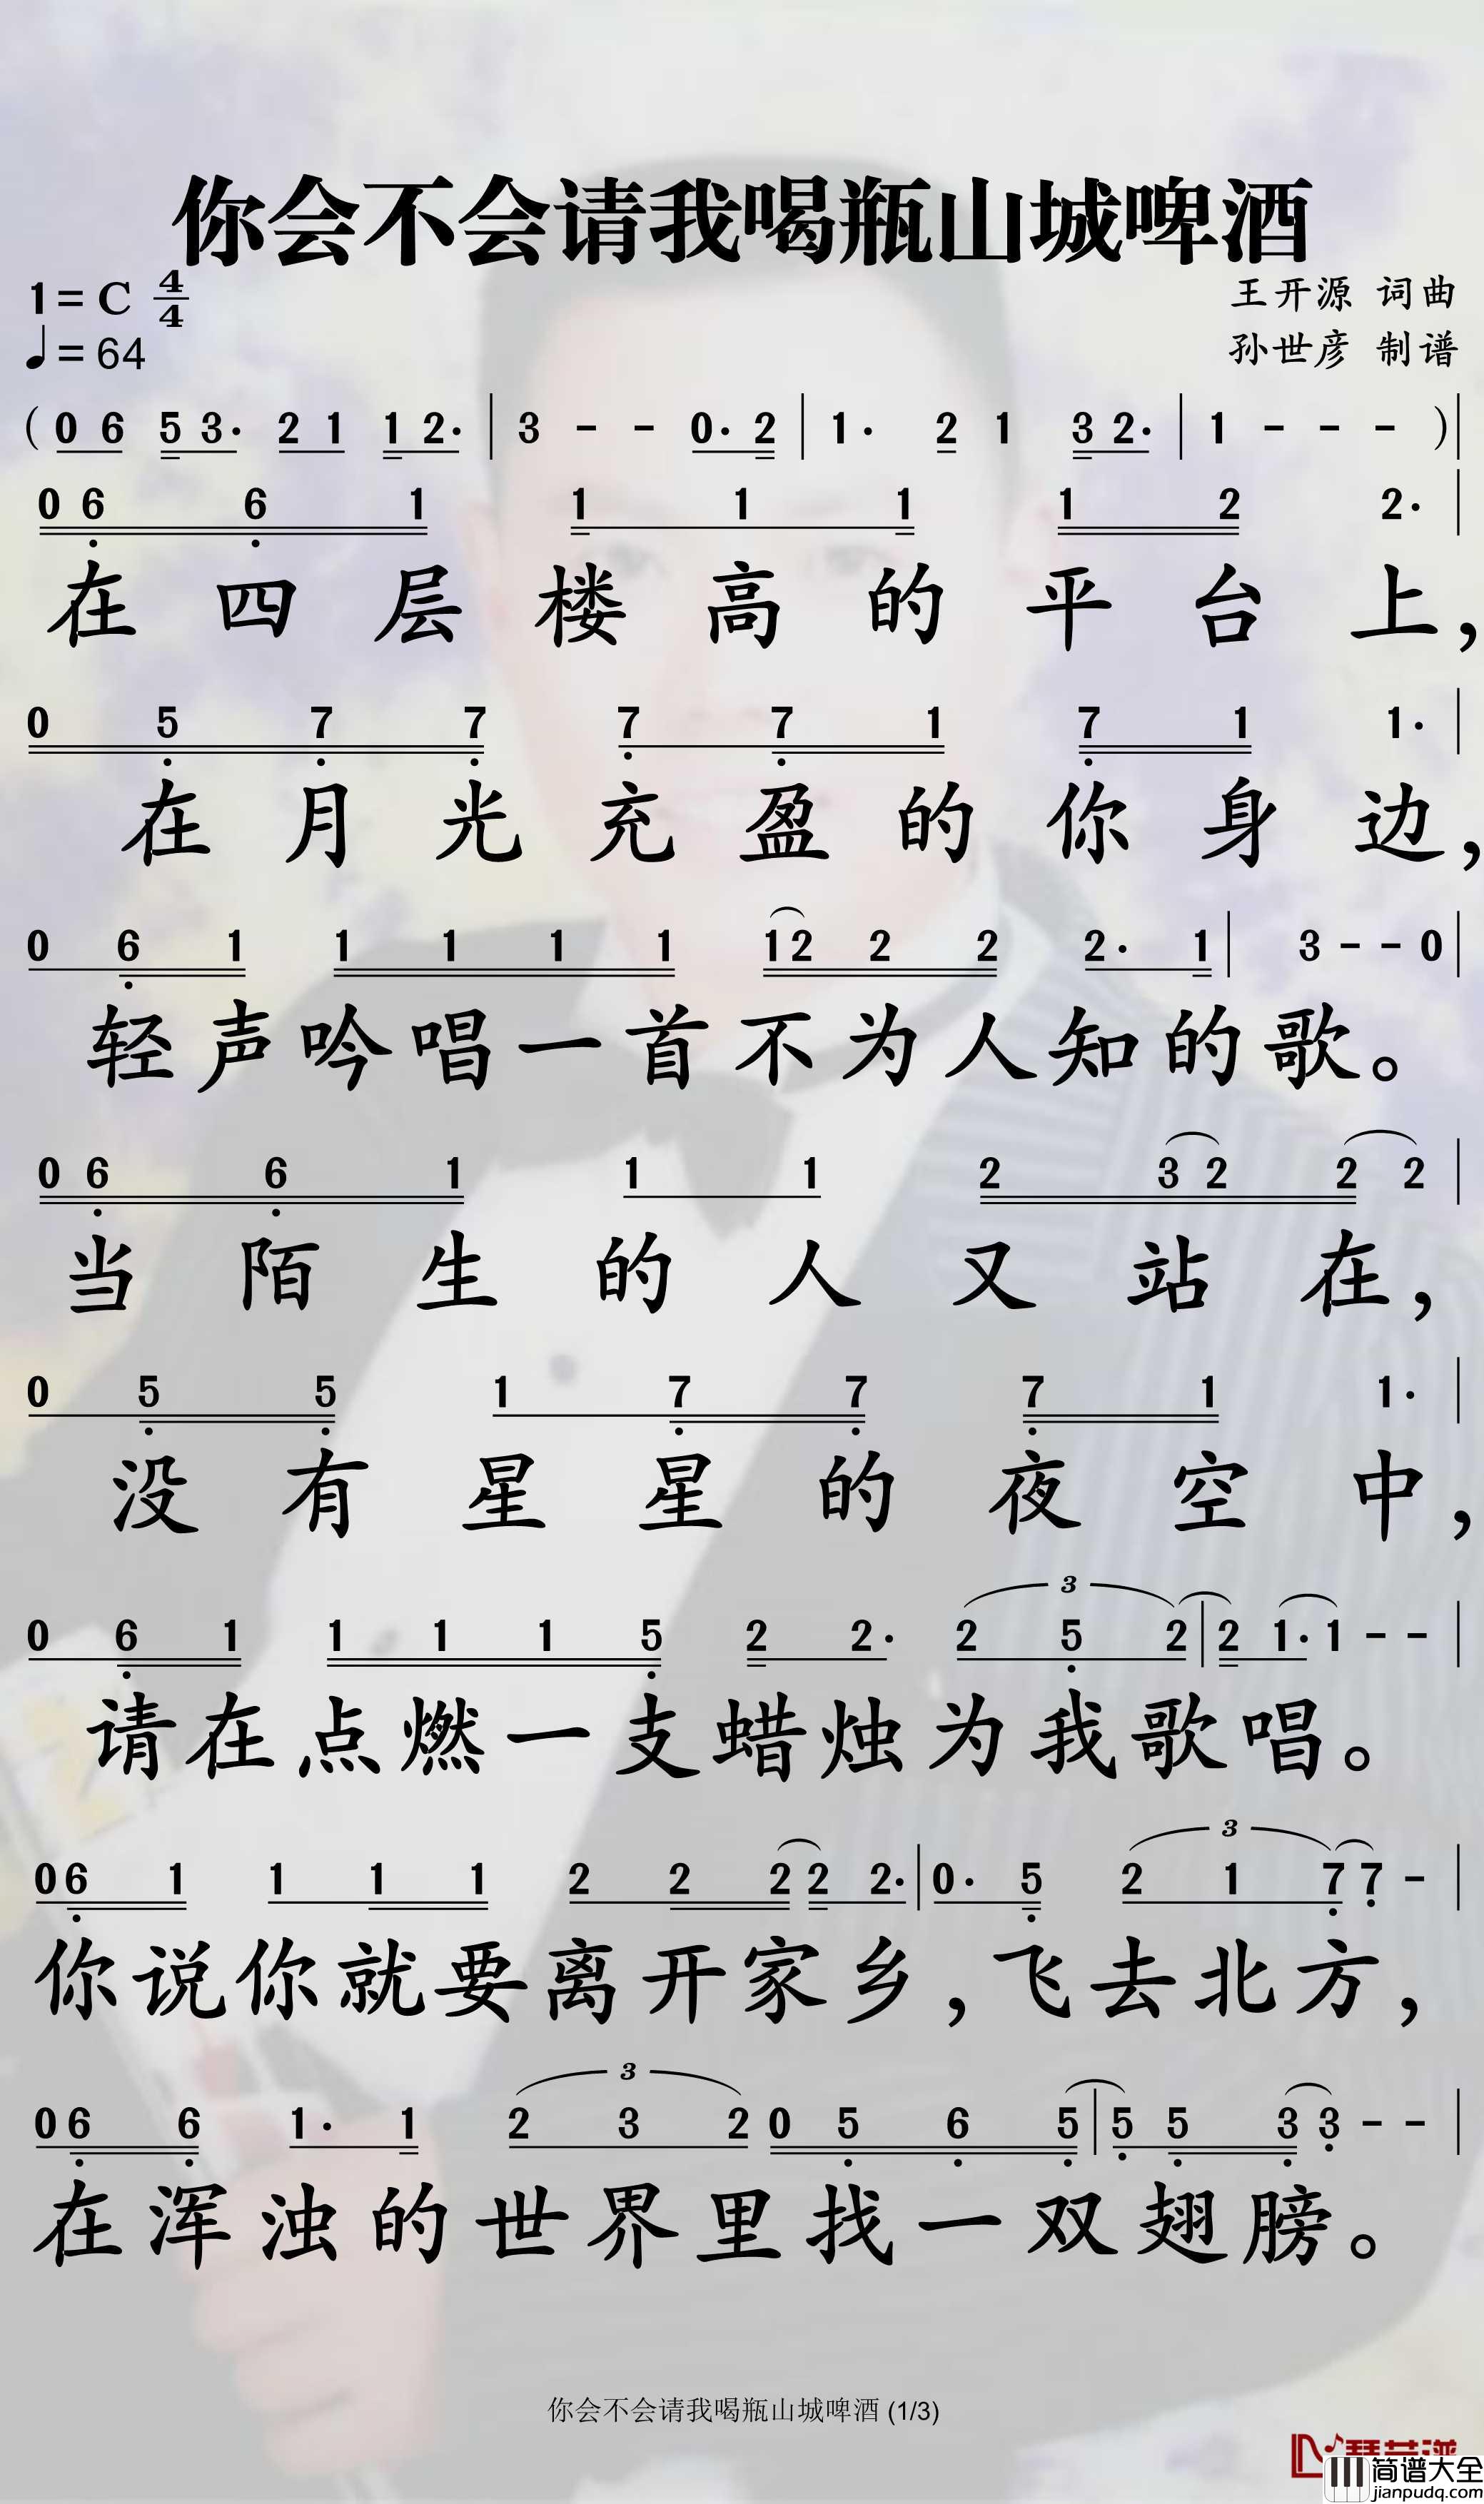 你会不会请我喝瓶山城啤酒
1=C 4/4
王开源 词曲
♩=64
孙世彦 制谱
( 0 6 5 3. 2 1 1 2. | 3 - - 0. 2 | 1. 2 1 3 2. | 1 - - - ) |
0 6 6 1 1 1 1 1 2 2. |
在四层楼高的平台上，
0 5 7 7 7 7 1 7 1 1. |
在月光充盈的你身边，
0 6 1 1 1 1 1 1 2 2 2 2. 1 | 3 - - 0 |
轻声吟唱一首不为人知的歌。
0 6 6 1 1 1 2 3 2 2 2 |
当陌生的人又站在，
0 5 5 1 7 7 7 1 1. |
没有星星的夜空中，
3
0 6 1 1 1 1 5 2 2. 2 5 2 | 2 1. 1 - - |
请在点燃一支蜡烛为我歌唱。
3
0 6 1 1 1 1 2 2 2 2 2. | 0. 5 2 1 7 7 - |
你说你就要离开家乡，飞去北方，
3
0 6 6 1. 1 2 3 2 0 5 6 5 | 5 5 3 3 - - |
在浑浊的世界里找一双翅膀。
你会不会请我喝瓶山城啤酒 (1/3)
简谱大全
jianpudq.com